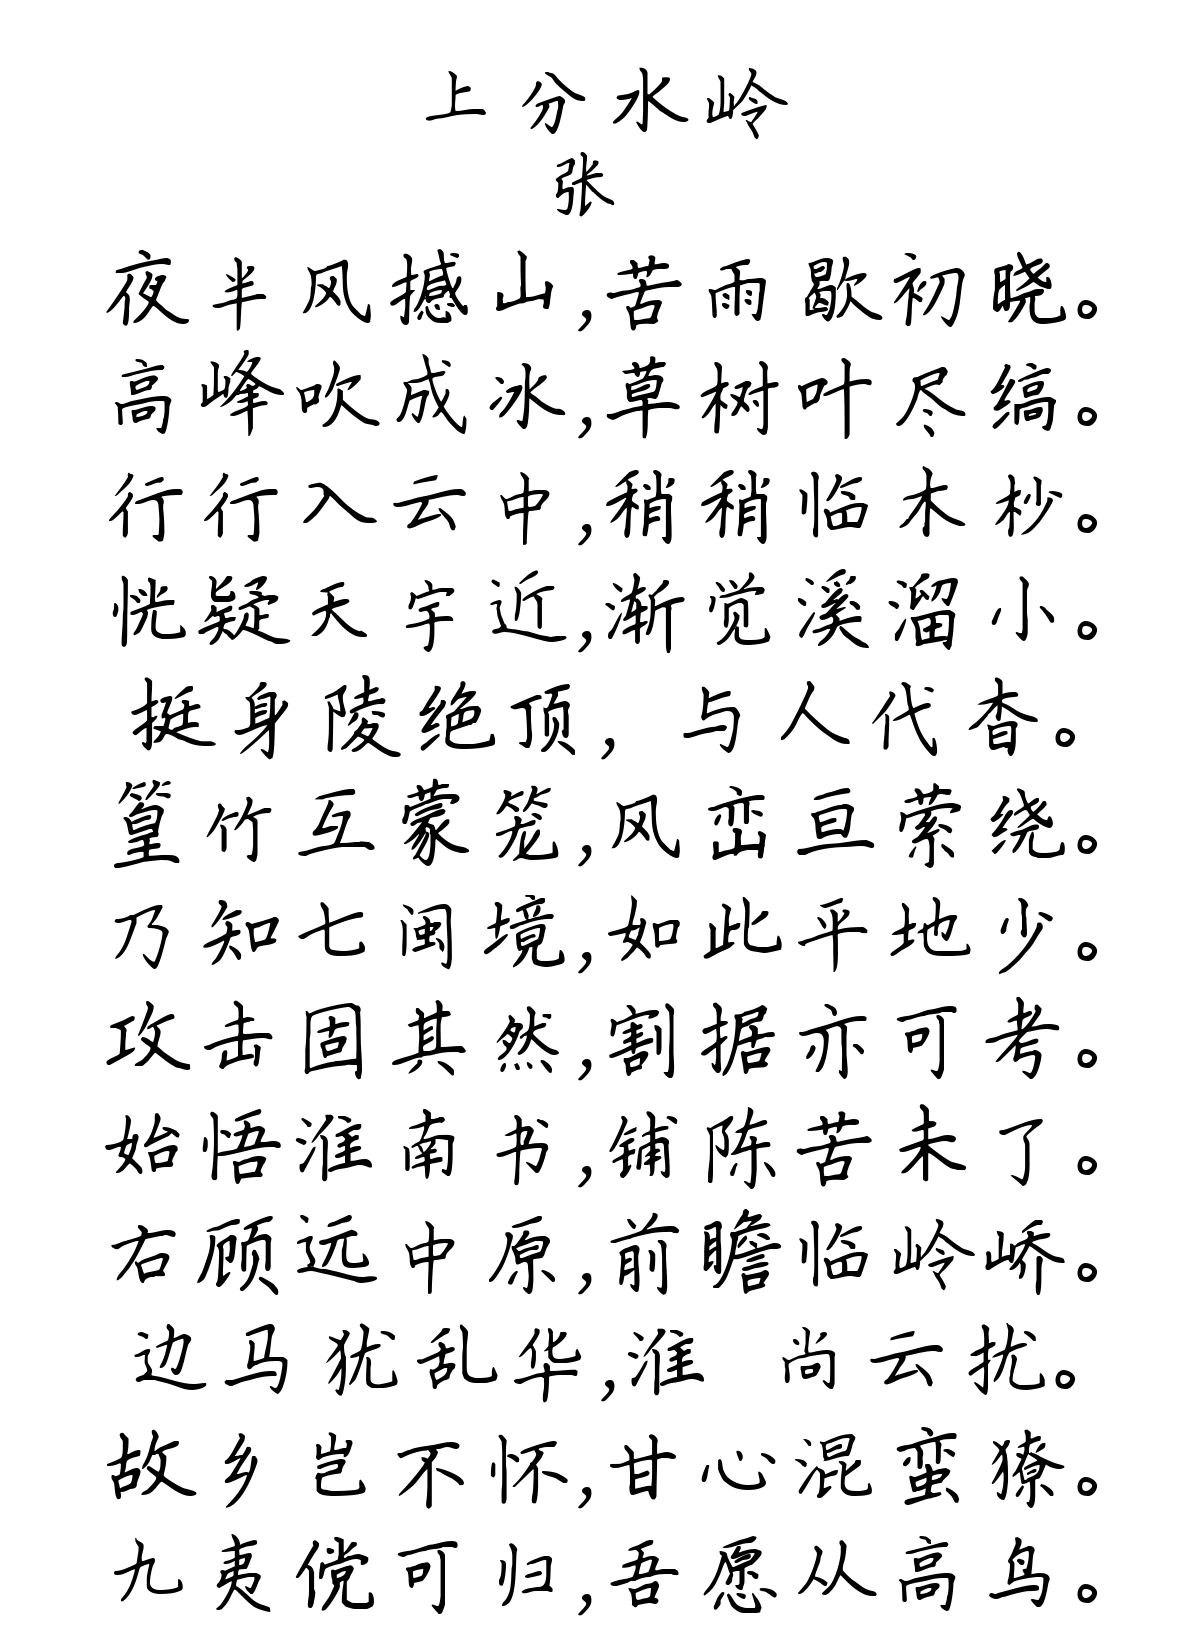 上分水岭
张
夜半风撼山,苦雨歇初晓。
高峰吹成冰,草树叶尽缟。
行行入云中,稍稍临木杪。
恍疑天宇近,渐觉溪溜小。
挺身陵绝顶, 与人代杳。
篁竹互蒙笼,风峦亘萦绕。
乃知七闽境,如此平地少。
攻击固其然,割据亦可考。
始悟淮南书,铺陈苦未了。
右顾远中原,前瞻临岭峤。
边马犹乱华,淮 尚云扰。
故乡岂不怀,甘心混蛮獠。
九夷傥可归,吾愿从高鸟。